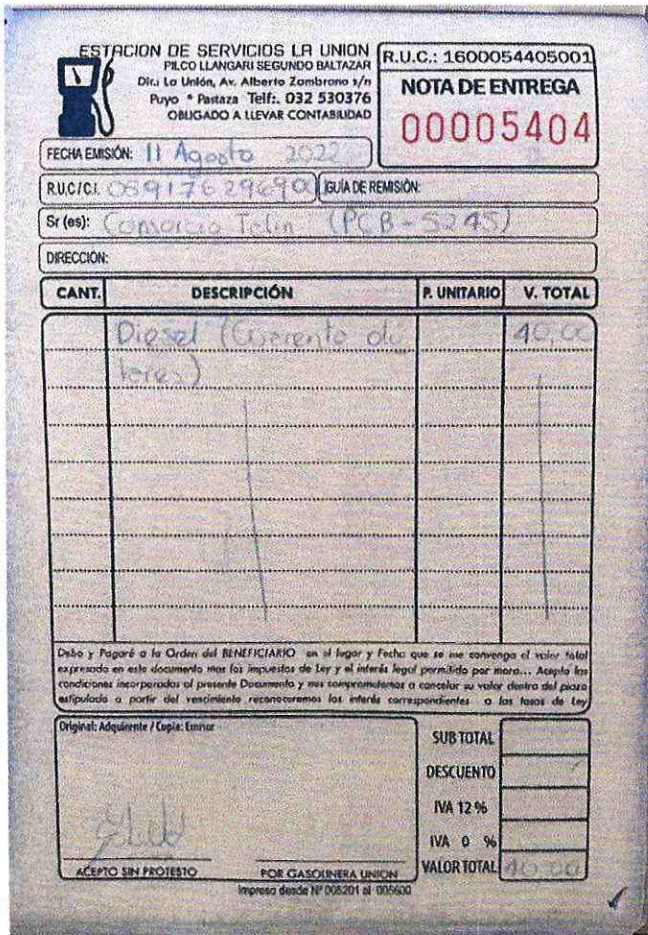 ESTACION DE SERVICIOS LA UNION
PILCO LLANGARI SEGUNDO BALTAZAR
Dir.: La Unión, Av. Alberto Zambrano s/n
Puyo * Pastaza Telf:. 032 530376
OBLIGADO A LLEVAR CONTABILIDAD
R.U.C.: 1600054405001
NOTA DE ENTREGA
00005404
FECHA EMISIÓN: 11 Agosto 2022
R.U.C/C.I. GUÍA DE REMISIÓN:
Sr (es): Consorcio Telin (PCB-5245)
DIRECCIÓN:
CANT. DESCRIPCIÓN P. UNITARIO V. TOTAL
Diesel (Cuarenta do 40,00
lares)
Debo y Pagaré a la Orden del BENEFICIARIO en el lugar y Fecha que se me convenga el valor total
expresado en este documento mas los impuestos de Ley y el interés legal permitido por mora... Acepto las
condiciones incorporadas al presente Documento y nos comprometemos a cancelar su valor dentro del plazo
estipulado a partir del vencimiento reconoceremos los interés correspondientes a las tasas de Ley
Original: Adquirente / Copia: Emisor
SUB TOTAL
DESCUENTO
IVA 12 %
IVA 0 %
VALOR TOTAL 40.00
ACEPTO SIN PROTESTO POR GASOLINERA UNION
Impreso desde Nº 005201 al 005600